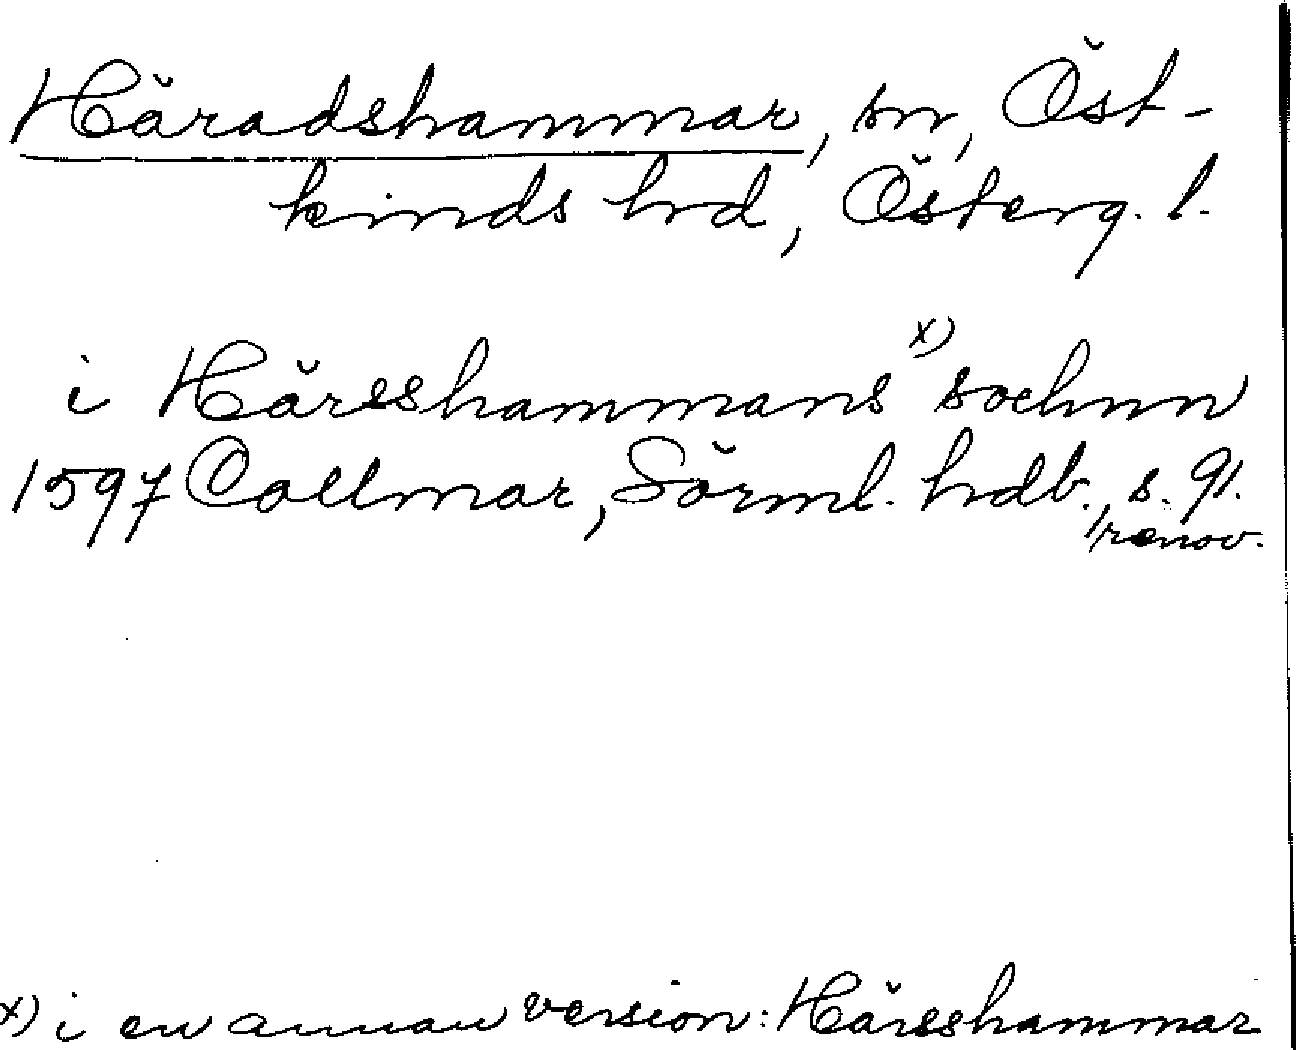 Häradshammar, sn, Öst-
kinds hrd, Österg. l.
i Häreshammars x) sochnn
1597 Collmar, Sörml. hdb., s. 91.
renov.
x) i en annan version: Häresshammar